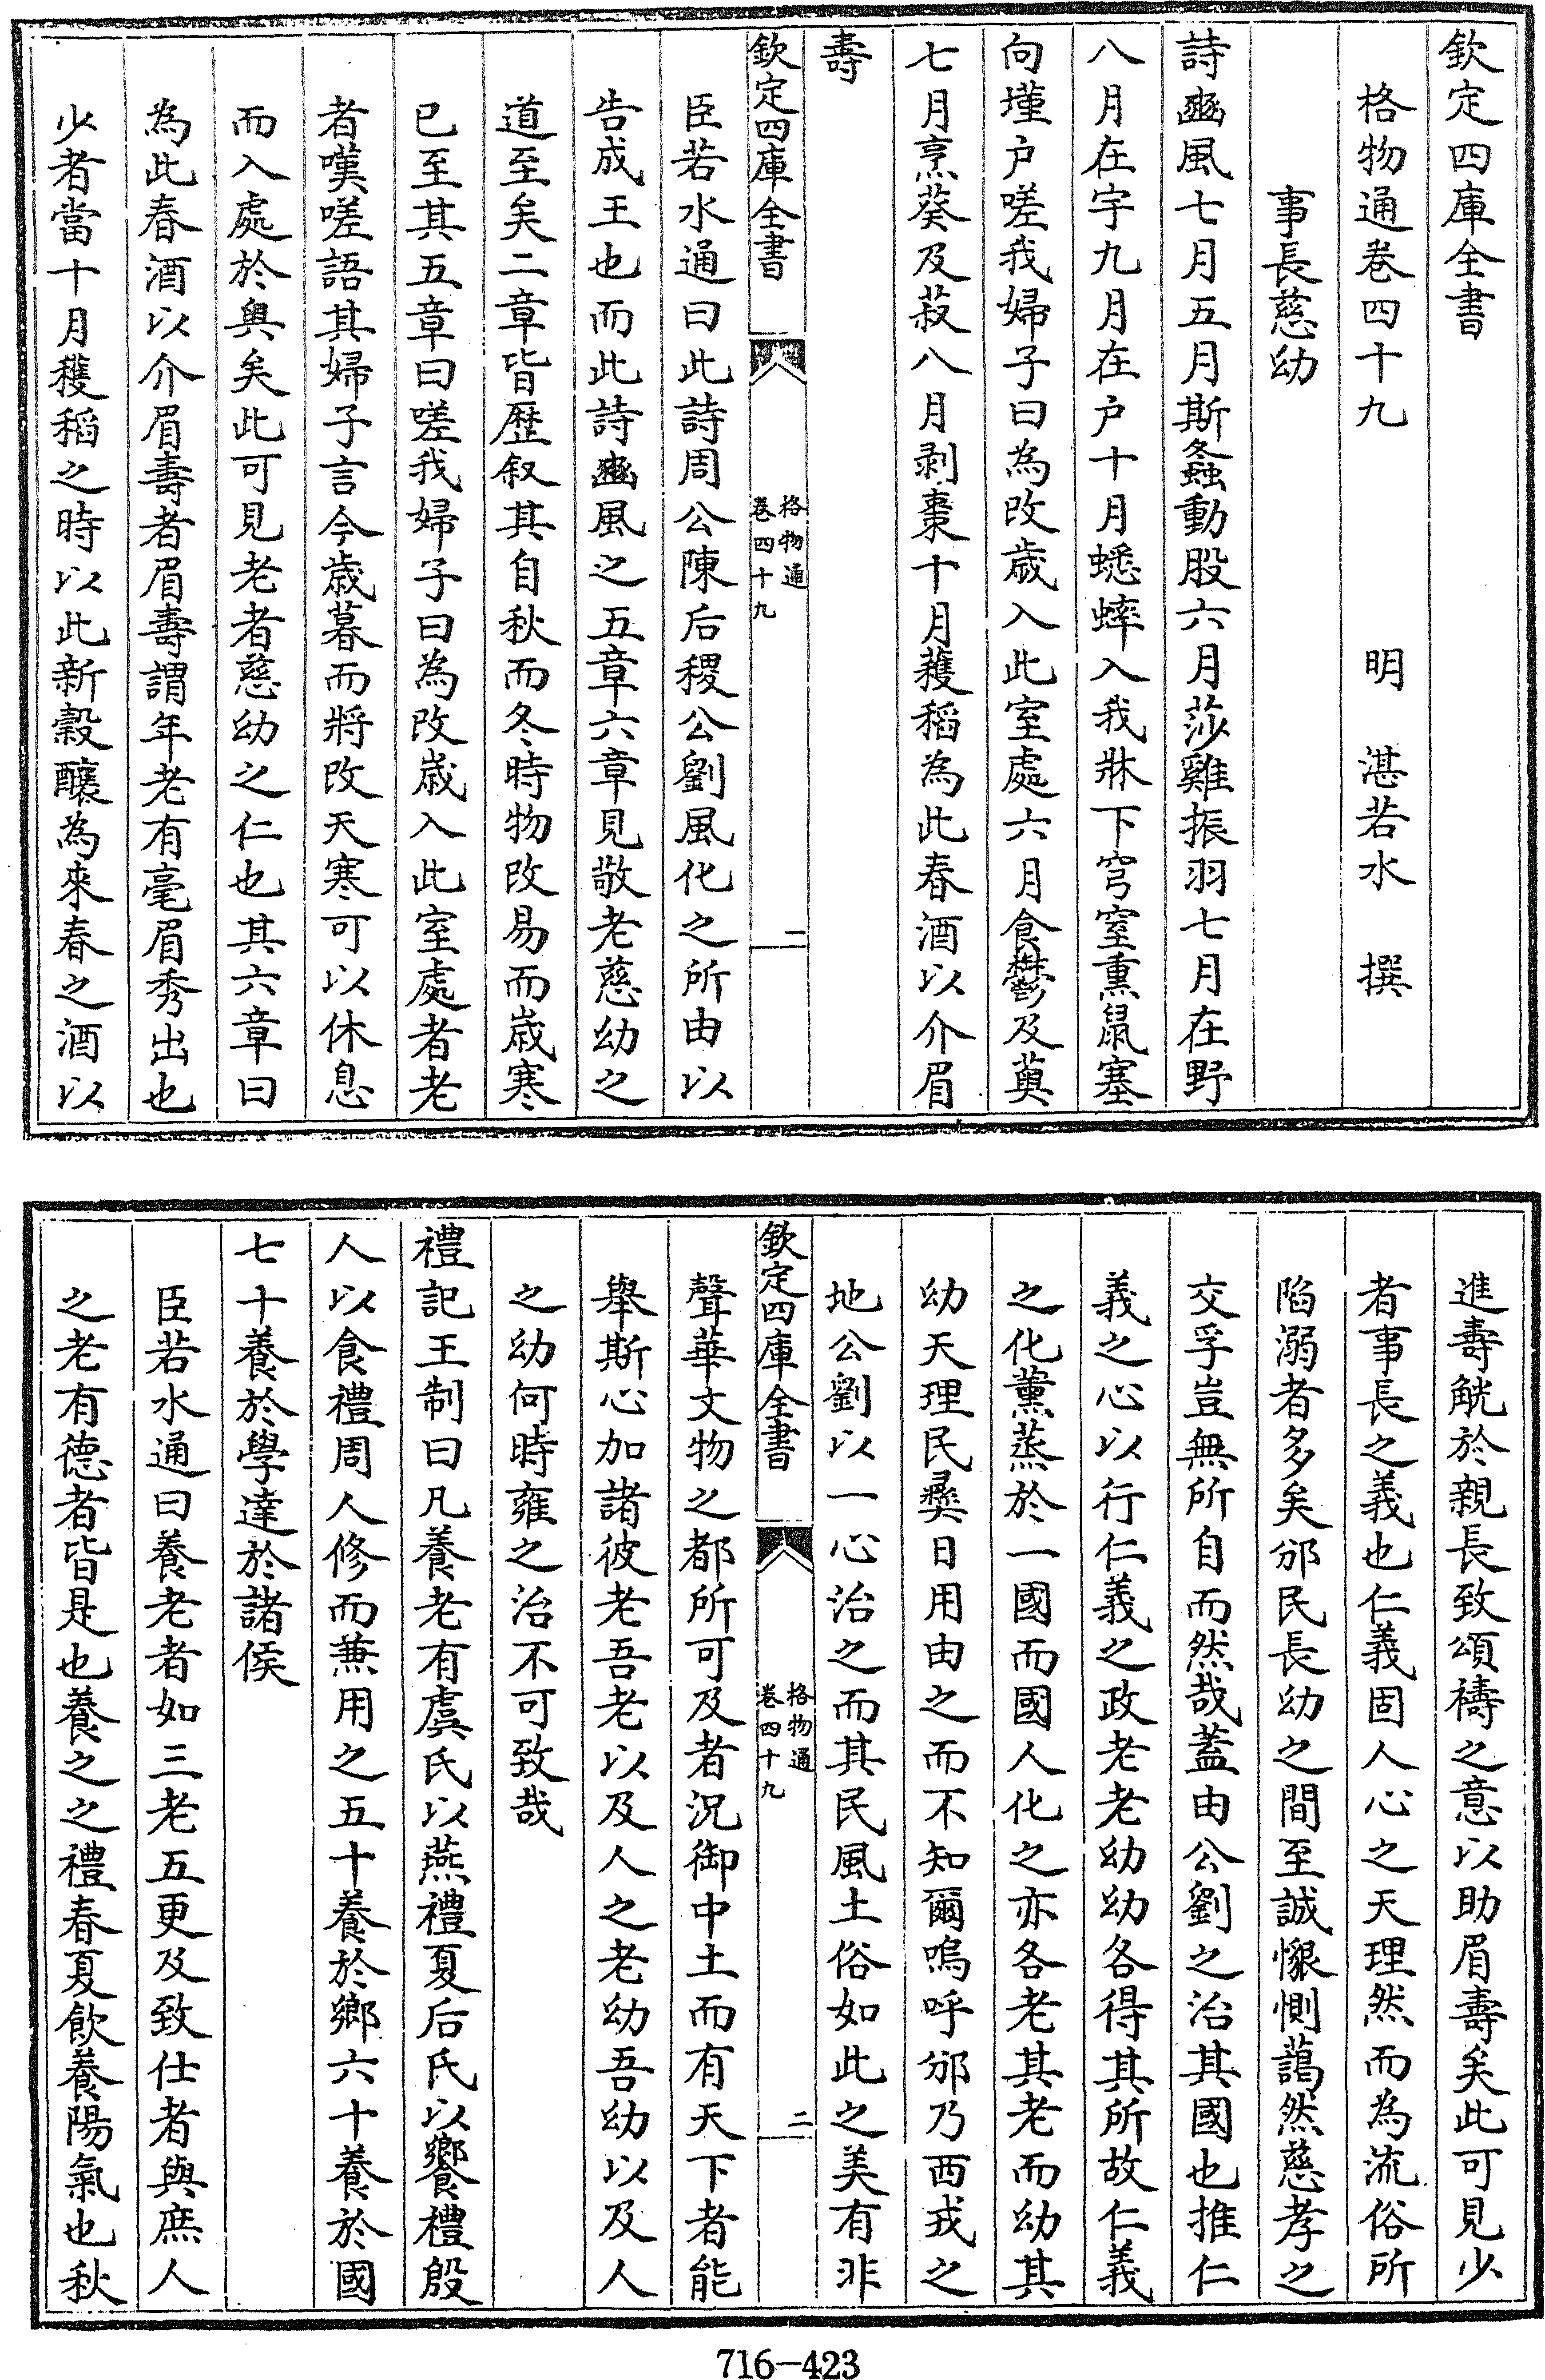 欽定四庫全書
格物通卷四十九　明　湛若水　撰
事長慈幼
詩豳風七月五月斯螽動股六月莎雞振羽七月在野
八月在宇九月在户十月蟋蟀入我牀下穹窒熏鼠塞
向墐户嗟我婦子曰為改歳入此室處六月食鬱及薁
七月烹葵及菽八月剥棗十月穫稻為此春酒以介眉
壽
欽定四庫全書
格物通
卷四十九
一
臣若水通曰此詩周公陳后稷公劉風化之所由以
告成王也而此詩豳風之五章六章見敬老慈幼之
道至矣二章皆歴叙其自秋而冬時物改易而歳寒
已至其五章曰嗟我婦子曰為改歳入此室處者老
者嘆嗟語其婦子言今歳暮而將改天寒可以休息
而入處於奥矣此可見老者慈幼之仁也其六章曰
為此春酒以介眉壽者眉壽謂年老有毫眉秀出也
少者當十月穫稻之時以此新穀釀為來春之酒以
進壽觥於親長致頌禱之意以助眉壽矣此可見少
者事長之義也仁義固人心之天理然而為流俗所
陷溺者多矣邠民長幼之間至誠懇惻藹然慈孝之
交孚豈無所自而然哉蓋由公劉之治其國也推仁
義之心以行仁義之政老老幼幼各得其所故仁義
之化薫蒸於一國而國人化之亦各老其老而幼其
幼天理民彛日用由之而不知爾嗚呼邠乃西戎之
地公劉以一心治之而其民風土俗如此之美有非
欽定四庫全書
格物通
卷四十九
二
聲華文物之都所可及者況御中土而有天下者能
舉斯心加諸彼老吾老以及人之老幼吾幼以及人
之幼何時雍之治不可致哉
禮記王制曰凡養老有虞氏以燕禮夏后氏以饗禮殷
人以食禮周人修而兼用之五十養於鄉六十養於國
七十養於學達於諸侯
臣若水通曰養老者如三老五更及致仕者與庶人
之老有德者皆是也養之之禮春夏飲養陽氣也秋
716-423